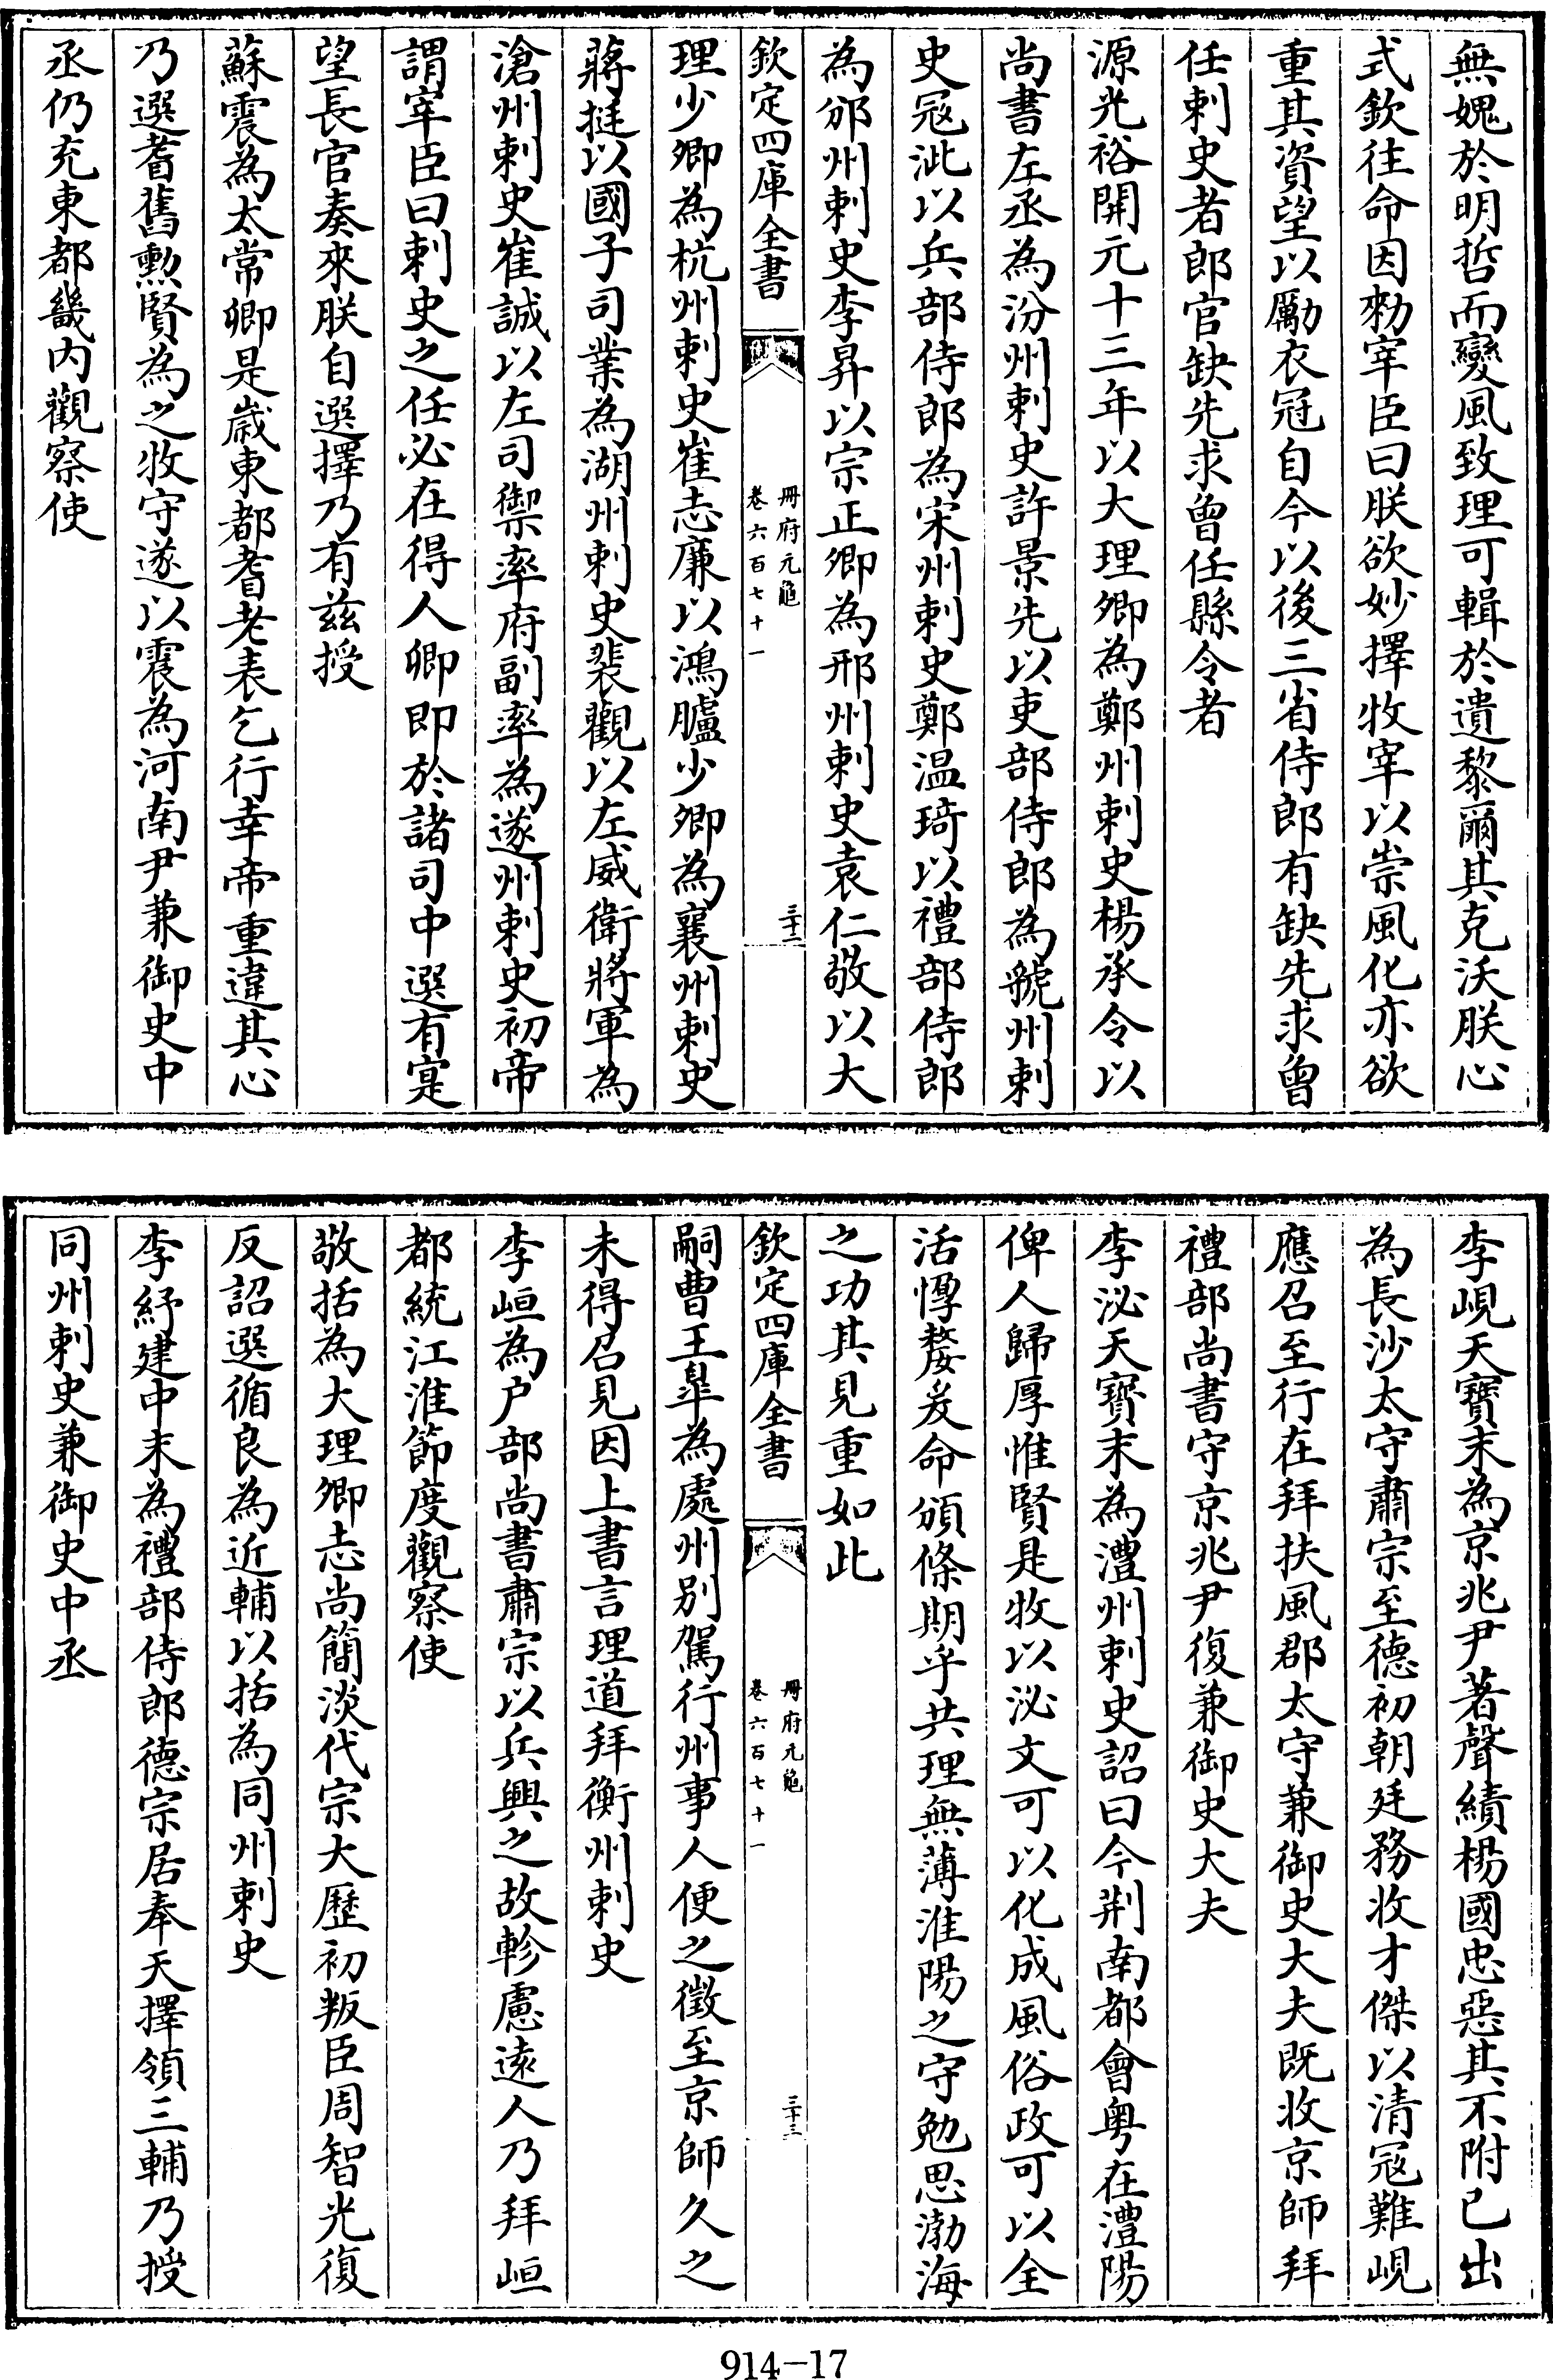 無媿於明哲而變風致理可輯於遺黎爾其克沃朕心
式欽往命因勑宰臣曰朕欲妙擇牧宰以崇風化亦欲
重其資望以勵衣冠自今以後三省侍郎有缺先求曾
任刺史者郎官缺先求曾任縣令者
源光裕開元十三年以大理卿為鄭州刺史楊承令以
尚書左丞為汾州刺史許景先以吏部侍郎為虢州刺
史寇泚以兵部侍郎為宋州刺史鄭温琦以禮部侍郎
為邠州刺史李昇以宗正卿為邢州刺史袁仁敬以大
欽定四庫全書
冊府元龜
卷六百七十一
三十二
理少卿為杭州刺史崔志廉以鴻臚少卿為襄州刺史
蔣挺以國子司業為湖州刺史裴觀以左威衛將軍為
滄州刺史崔誠以左司禦率府副率為遂州刺史初帝
謂宰臣曰刺史之任必在得人卿即於諸司中選有寔
望長官奏來朕自選擇乃有兹授
蘇震為太常卿是歲東都耆老表乞行幸帝重違其心
乃選耆舊勲賢為之牧守遂以震為河南尹兼御史中
丞仍充東都畿内觀察使
李峴天寶末為京兆尹著聲績楊國忠惡其不附已出
為長沙太守肅宗至德初朝廷務收才傑以清寇難峴
應召至行在拜扶風郡太守兼御史大夫既收京師拜
禮部尚書守京兆尹復兼御史大夫
李泌天寶末為澧州刺史詔曰今荆南都會粤在澧陽
俾人歸厚惟賢是牧以泌文可以化成風俗政可以全
活惸嫠爰命頒條期乎共理無薄淮陽之守勉思渤海
之功其見重如此
欽定四庫全書
冊府元龜
卷六百七十一
三十三
嗣曹王臯為處州别駕行州事人便之徵至京師久之
未得召見因上書言理道拜衡州刺史
李峘為户部尚書肅宗以兵興之故軫慮遠人乃拜峘
都統江淮節度觀察使
敬括為大理卿志尚簡淡代宗大歷初叛臣周智光復
反詔選循良為近輔以括為同州刺史
李紓建中末為禮部侍郎德宗居奉天擇領三輔乃授
同州刺史兼御史中丞
914-17